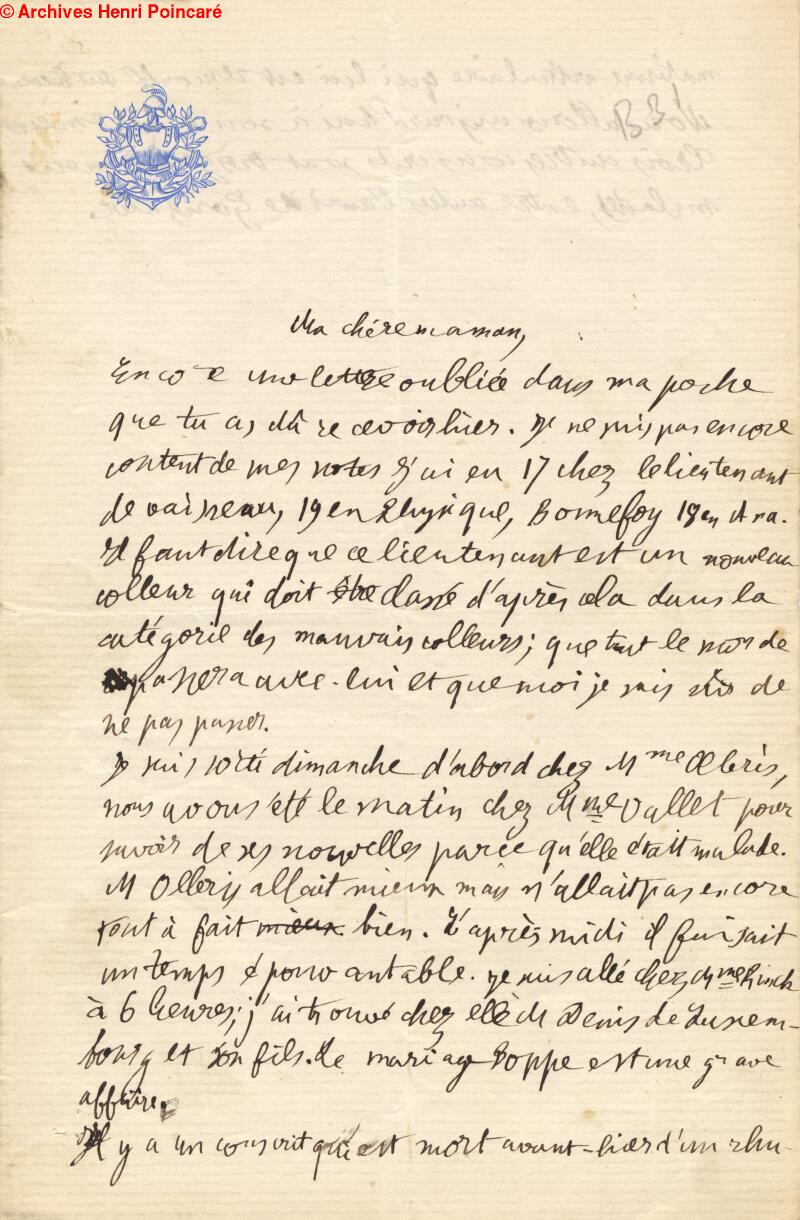 © Archives Henri Poincaré
BB1
Ma chère maman,
Enco e une lettre oubliée dans ma poche
que tu as dû recevoir hier. Je ne suis pas encore
content de mes notes j'ai eu 17 chez le lieutenant
de vaisseau, 19 en Physique, Bonnefoy 18 en Ana.
Il faut dire que ce lieutenant est un nouveau
colleur qui doit être classé d'après cela dans la
catégorie des mauvais colleurs; que tout le monde
passera avec lui et que moi je suis sûr de
ne pas passer.
Je suis sorti dimanche d'abord chez Mme Olleris,
nous avons été le matin chez Mme Vallet pour
savoir de ses nouvelles parce qu'elle était malade.
M Olleris allait mieux mais n'allait pas encore
tout à fait mieux bien. L'après midi il faisait
un temps épouvantable. Je suis allé chez Mme Rinck
à 6 heures; j'ai trouvé chez elle M Denis de Luxem-
bourg et son fils. Le mariage Hoppe est une grave
affaire.
Il y a un conscrit qui est mort avant-hier d'un rhu-